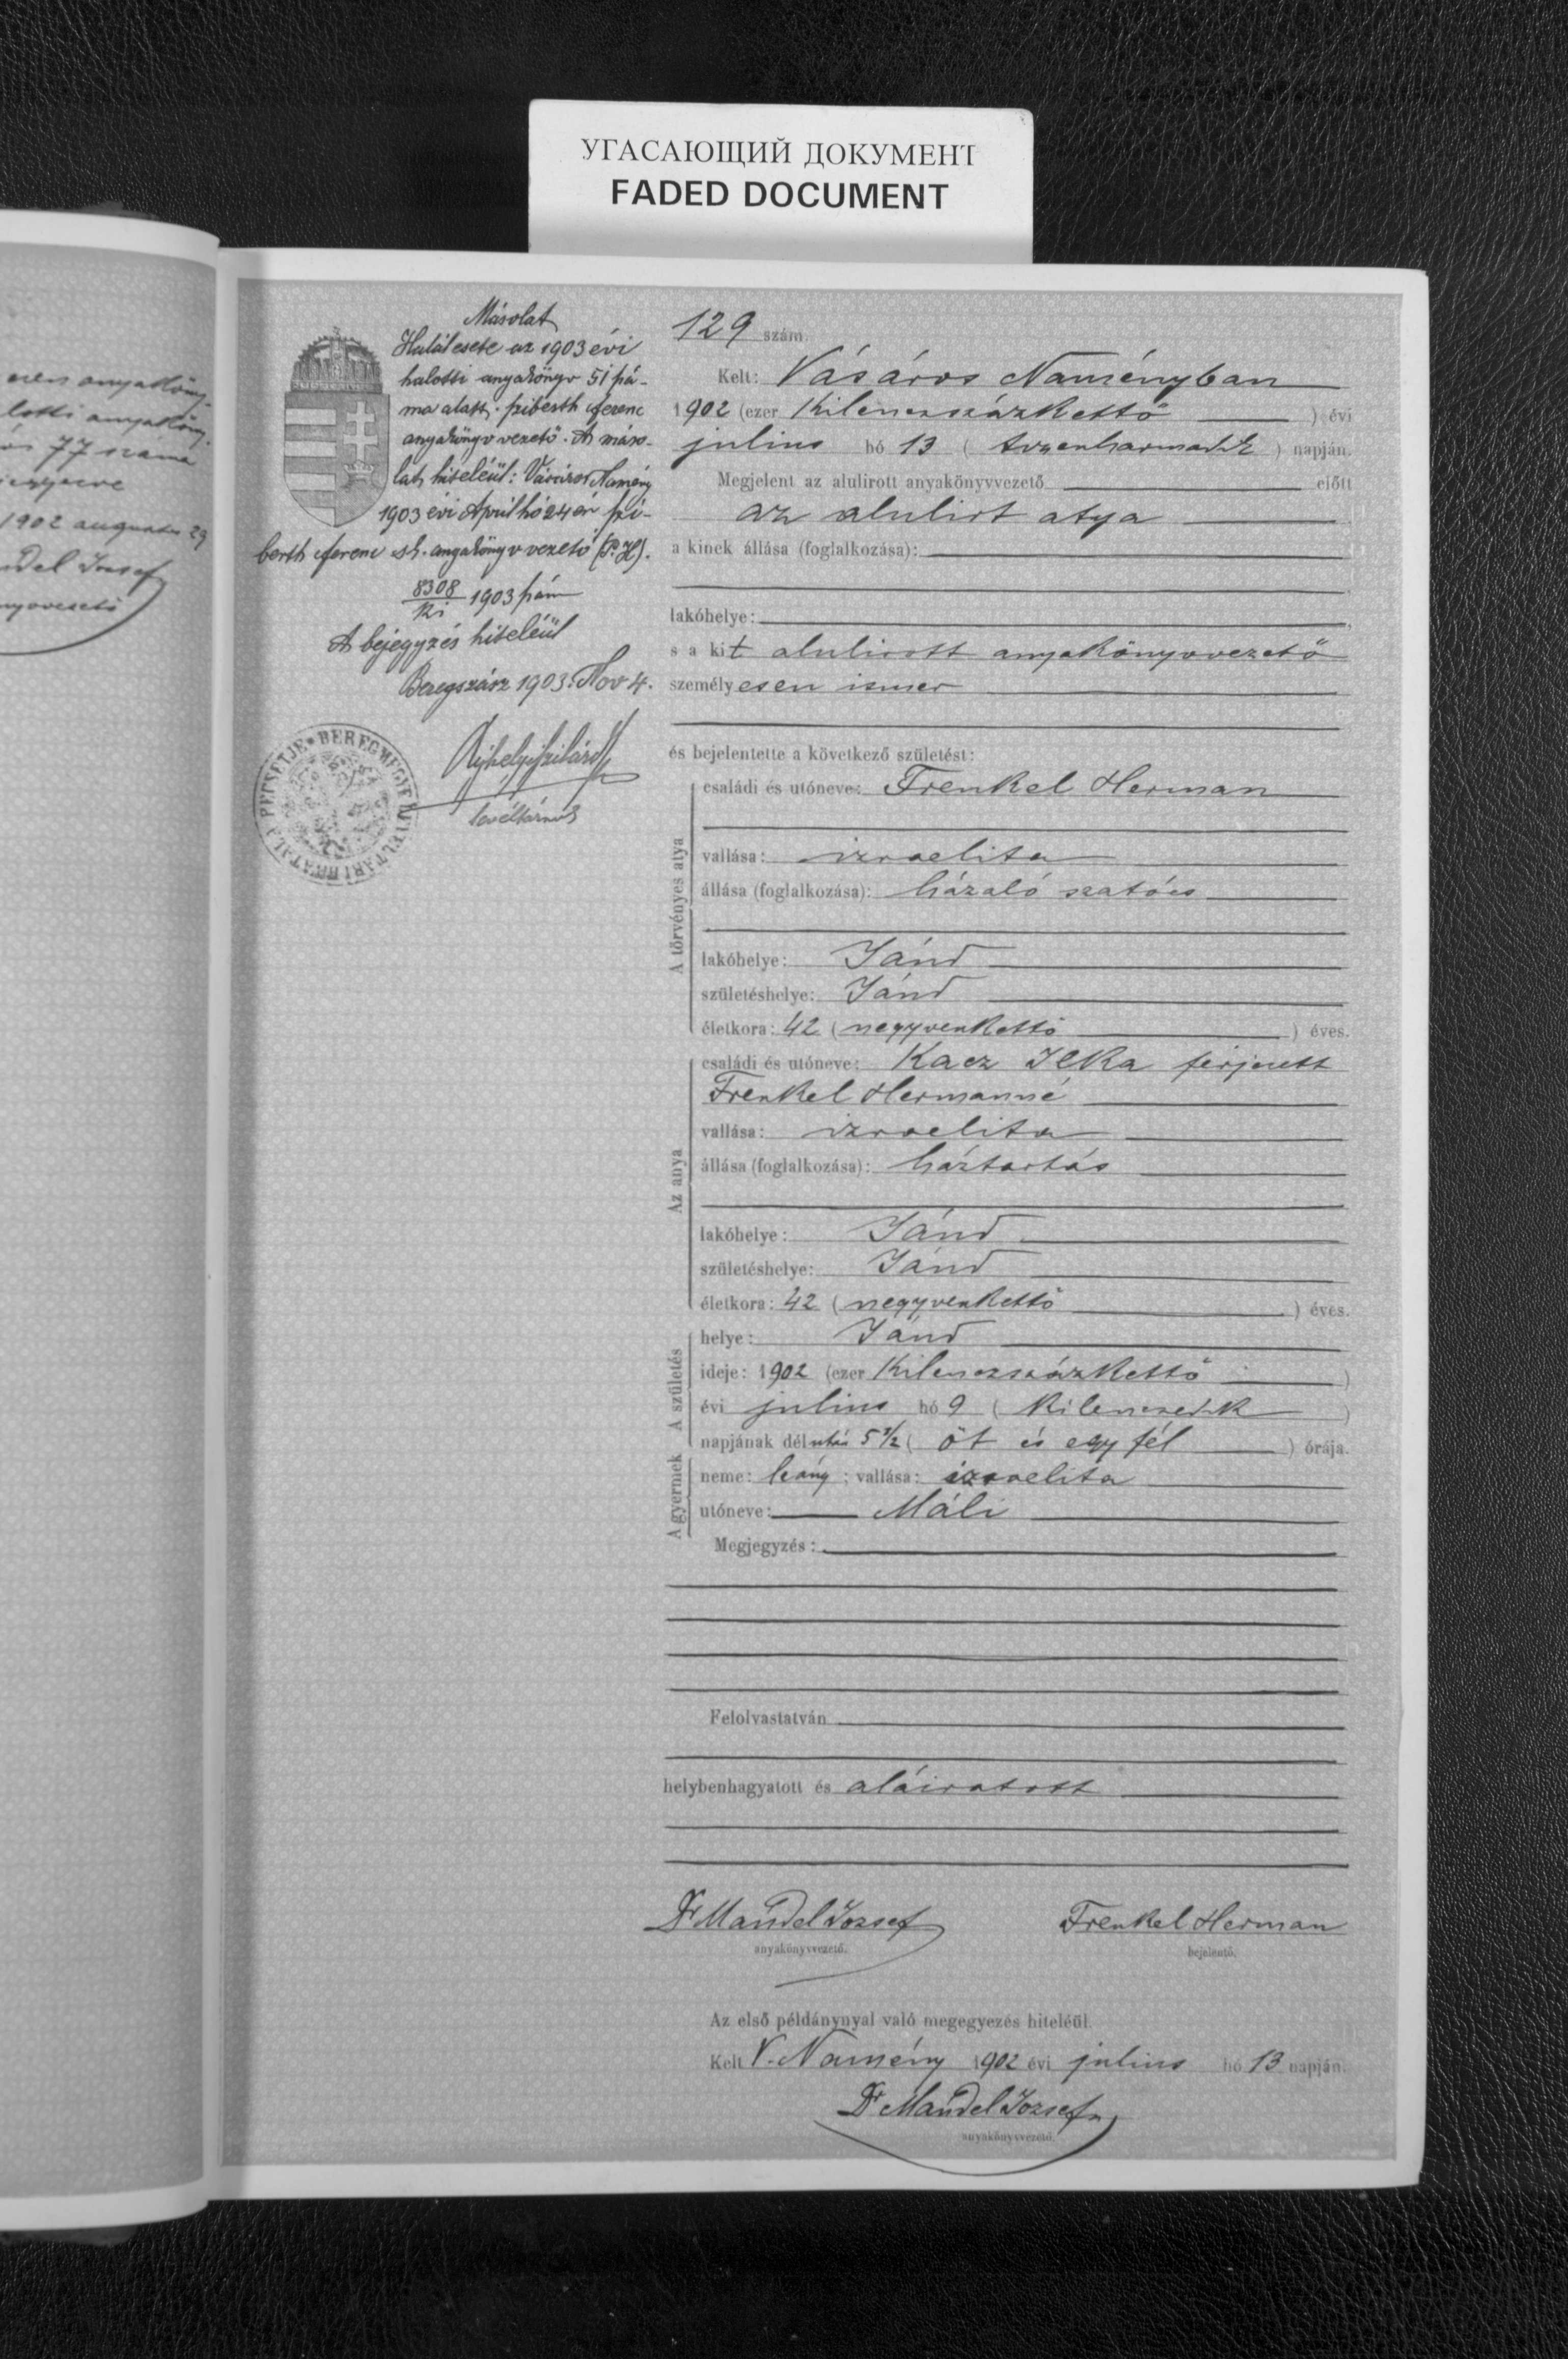 УГАСАЮЩИЙ ДОКУМЕНТ
FADED DOCUMENT
ezen anyaköny-
lotti anyaköny.
77 száma
jegyezve
1902 augusztus 29
József
Másolat
Halálesete az 1903 évi
halotti anyakönyv 51 szá-
ma alatt. Sziberth Ferenc
anyakönyvvezető. A máso-
lat hiteléül: Vásáros Namény
1903 évi April hó 24én Szi-
berth Ferenc sk. anyakönyvvezető (P.H).
8308
ki 1903 szám
A bejegyzés hiteléül
Beregszász 1903. Nov 4.
levéltárnok
129 szám.
Kelt: Vásáros Naményban
1902 (ezer kilenczszázkettő ) évi
julius hó 13 ( tizenharmadik ) napján.
Megjelent az alulirott anyakönyvvezető előtt
az alulirt atya
a kinek állása (foglalkozása):
lakóhelye:
s a kit alulirott anyakönyvvezető
személyesen ismer
és bejelentette a következő születést:
A törvényes atya
családi és utóneve: Frenkel Herman
vallása: izraelita
állása (foglalkozása): házaló szatócs
lakóhelye: Jánd
születéshelye: Jánd
életkora: 42 (negyvenkettő ) éves.
Az anya
családi és utóneve: Kacz Ilka férjezett
Frenkel Hermanné
vallása: izraelita
állása (foglalkozása): háztartás
lakóhelye: Jánd
születéshelye: Jánd
életkora: 42 (negyvenkettő ) éves.
A születés
helye: Jánd
ideje: 1902 (ezer kilenczszázkettő )
évi julius hó 9 ( kilenczedik )
napjának délután 5 1/2 ( öt és egy fél ) órája.
A gyermek
neme: leány ; vallása: izraelita
utóneve: Máli
Megjegyzés:
Felolvastatván
helybenhagyatott és aláiratott
Dr Mandel József Frenkel Herman
anyakönyvvezető. bejelentő.
Az első példánynyal való megegyezés hiteléül.
Kelt V. Namény 1902 évi julius hó 13 napján.
Dr Mandel József
anyakönyvvezető.